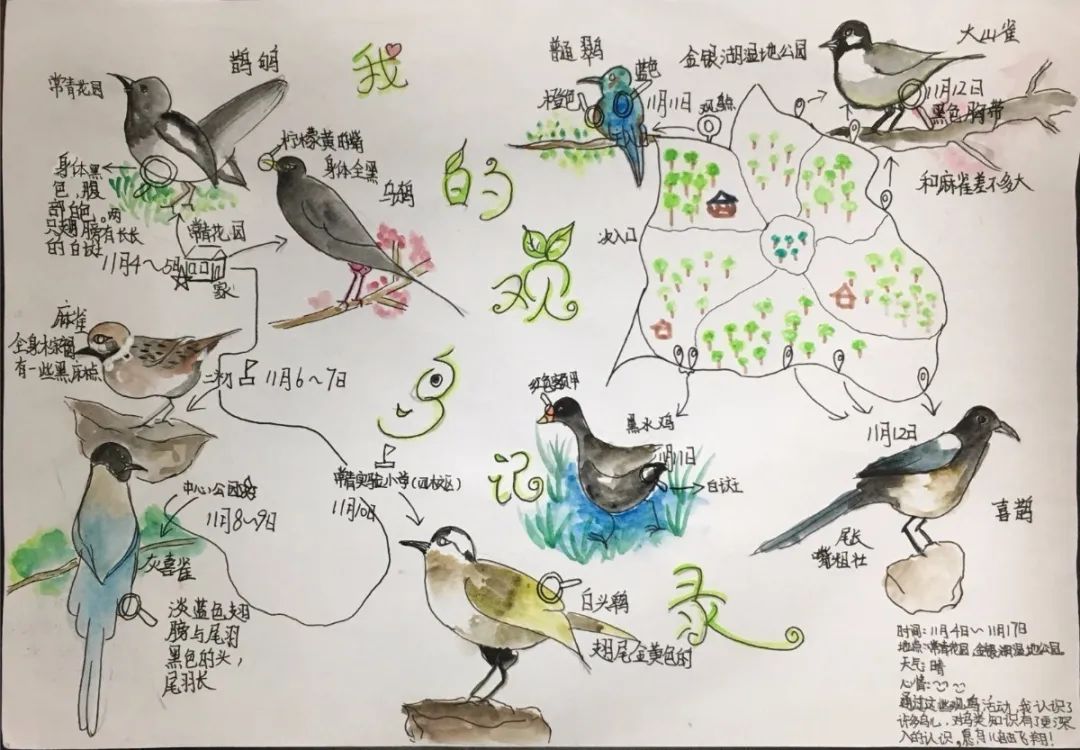 我的观鸟记录
常青花园
鹊鸲
身体黑
色，腹
部白色。两
只翅膀有长长
的白斑
11月4~5日
常青花园
家
柠檬黄的嘴
身体全黑
乌鸫
麻雀
全身棕褐
有一些黑麻点
二初
11月6~7日
中心公园
11月8~9日
灰喜雀
淡蓝色翅
膀与尾羽
黑色的头，
尾羽长
常青实验小学(四校区)
11月10日
白头鹎
翅尾金黄色的
普通翠鸟
蓝色
橙色
11月11日
观鱼
金银湖湿地公园
大山雀
11月12日
黑色胸带
和麻雀差不多大
次入口
红色额甲
黑水鸡
11月11日
白斑
11月12日
喜鹊
尾长
嘴粗壮
时间：11月4日~11月17日
地点：常青花园、金银湖湿地公园
天气：晴
心情：
通过这些观鸟活动，我认识了
许多鸟儿，对鸟类知识有了更深
入的认识。愿鸟儿自由飞翔！